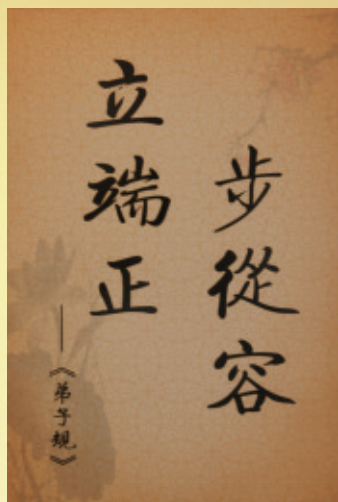 步從容
立端正
——《弟子規》